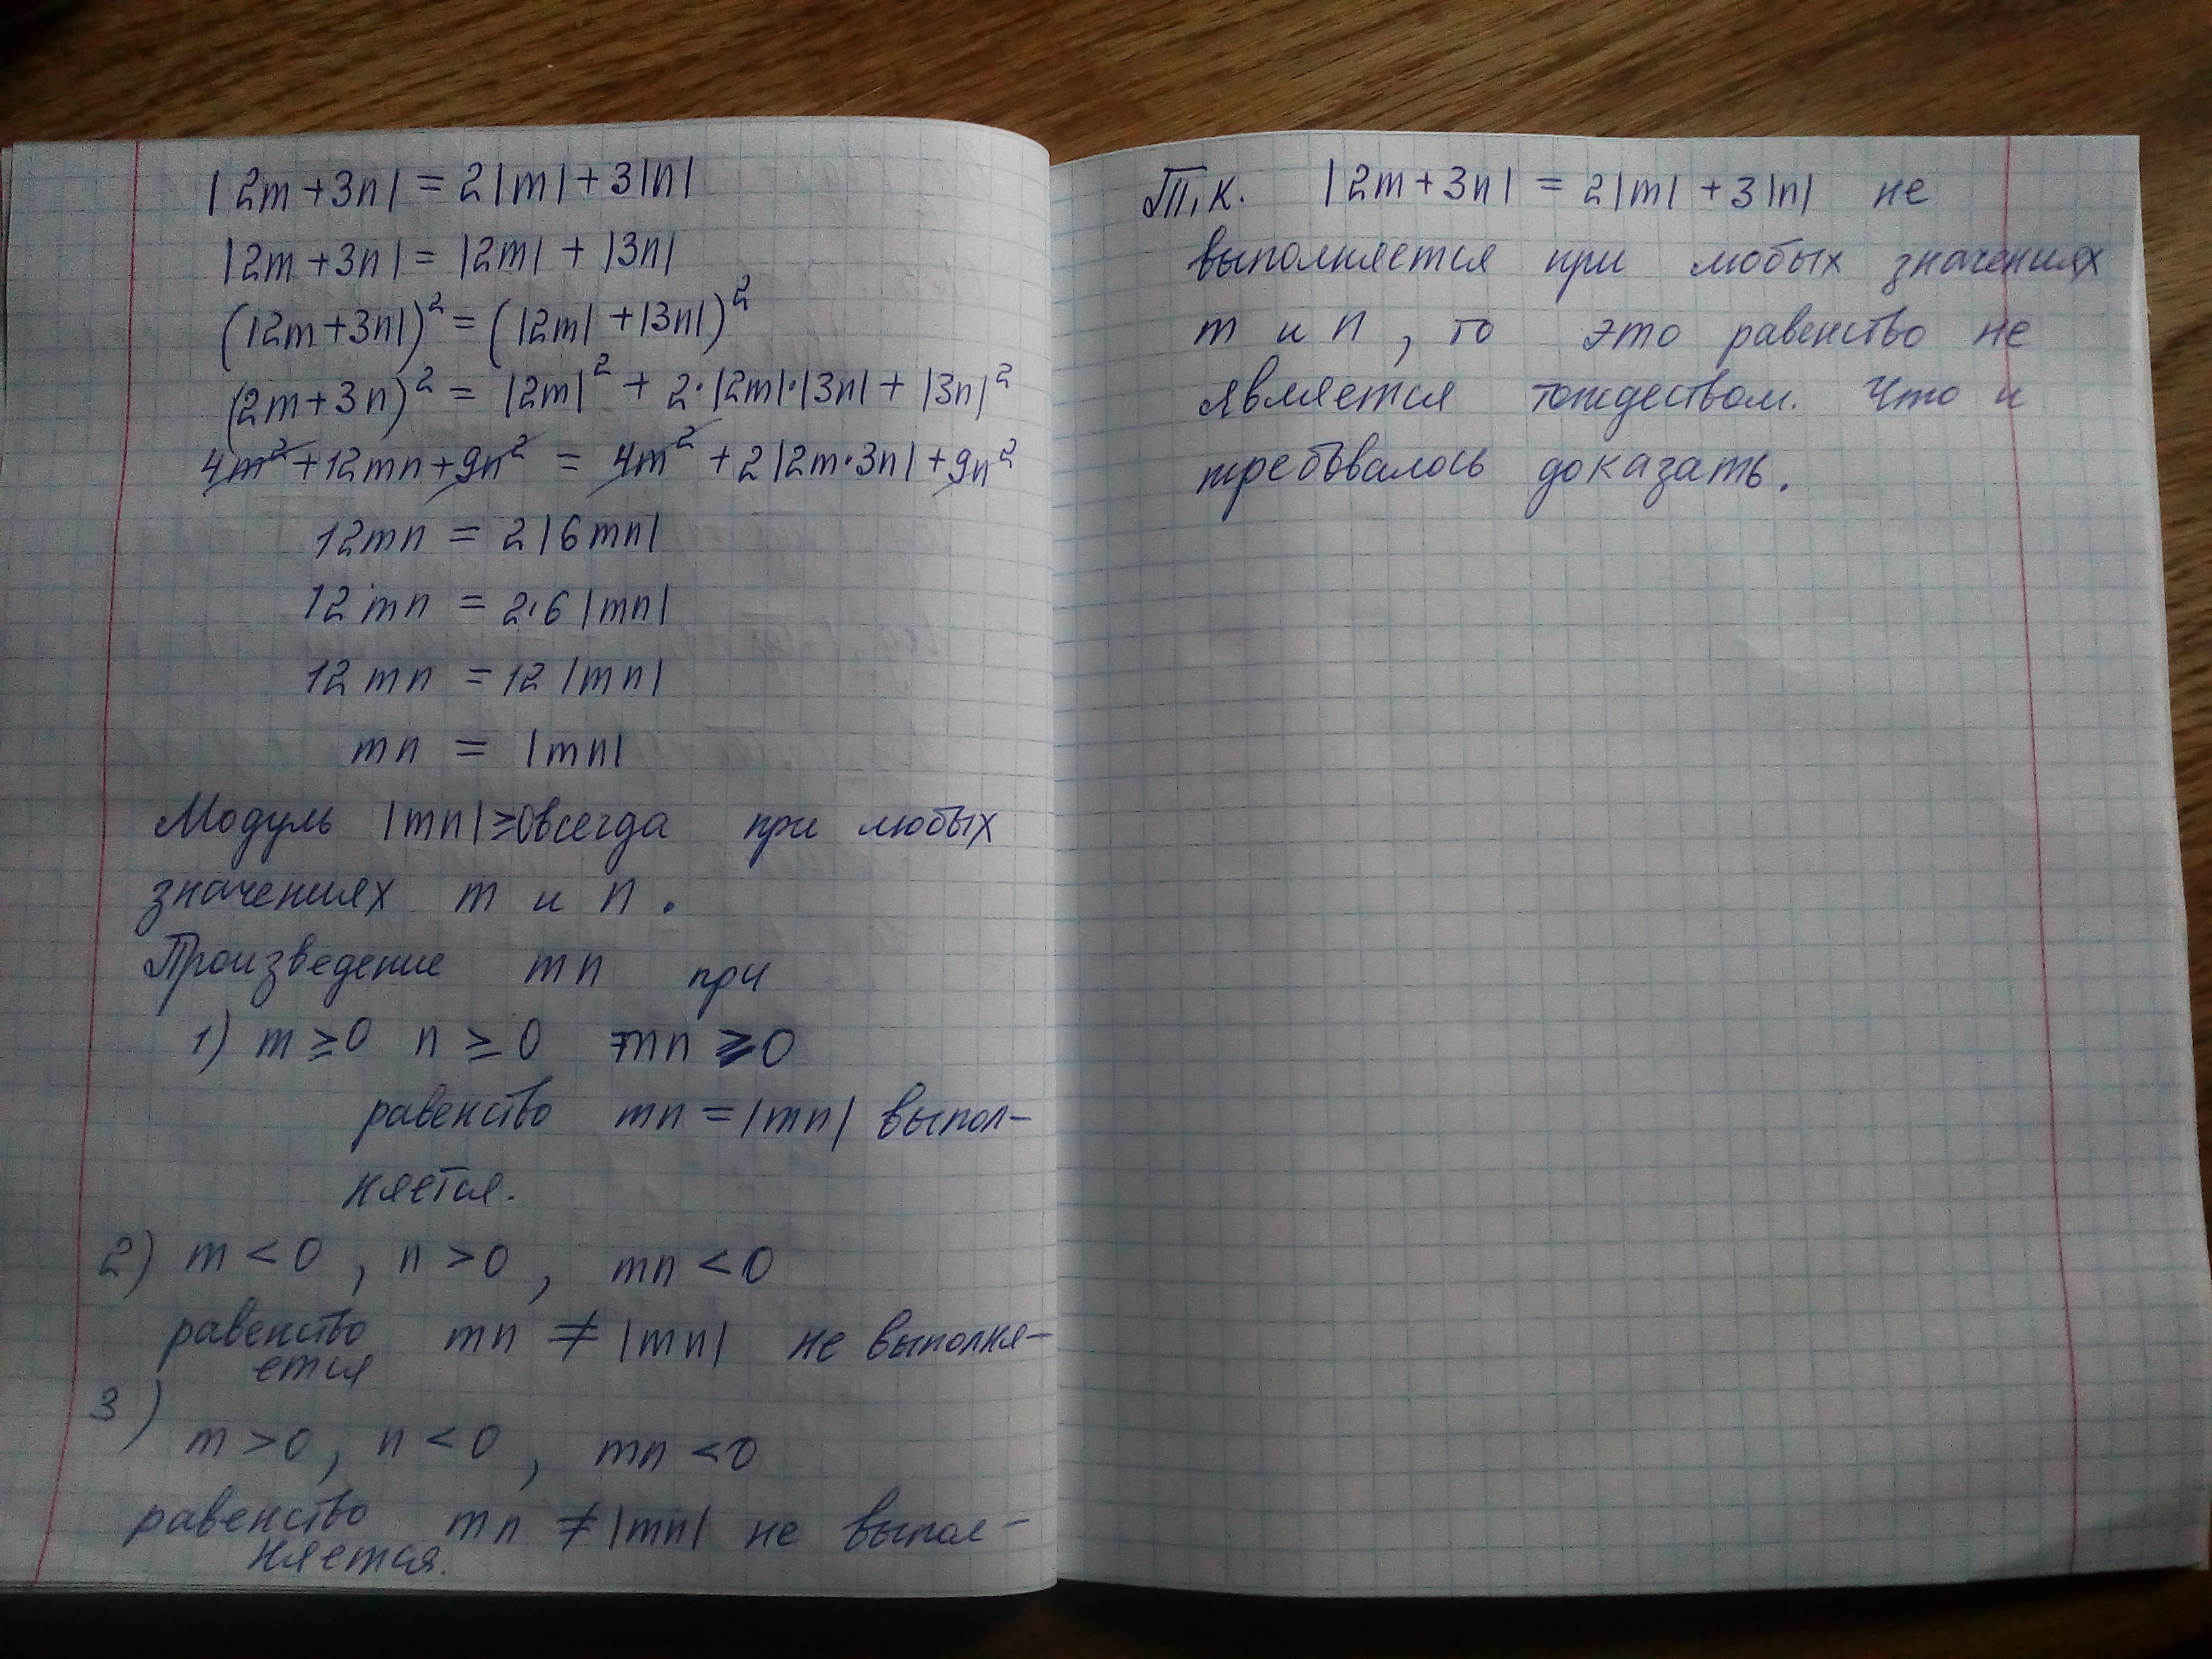 |2m+3n| = 2|m|+3|n|
|2m+3n| = |2m| + |3n|
(|2m+3n|)² = (|2m| + |3n|)²
(2m+3n)² = |2m|² + 2·|2m|·|3n| + |3n|²
4m² + 12mn + 9n² = 4m² + 2|2m·3n| + 9n²
12mn = 2|6mn|
12mn = 2·6|mn|
12mn = 12|mn|
mn = |mn|
Модуль |mn|≥0 всегда при любых
значениях m и n.
Произведение mn при
1) m ≥ 0 n ≥ 0 mn ≥ 0
равенство mn = |mn| выпол-
няется.
2) m < 0, n > 0, mn < 0
равенство mn ≠ |mn| не выполня-
ется
3)
m > 0, n < 0, mn < 0
равенство mn ≠ |mn| не выпол-
няется.
Т.к. |2m+3n| = 2|m| + 3|n| не
выполняется при любых значениях
m и n, то это равенство не
является тождеством. Что и
требовалось доказать.